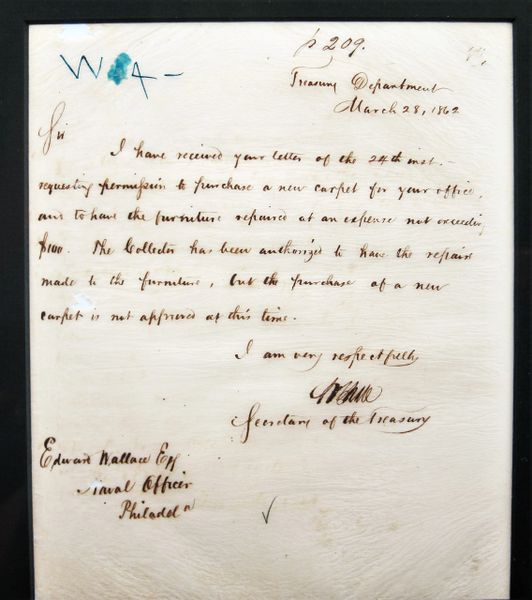 p 209.
W A –
Treasury Department
March 28, 1862
Sir
I have received your letter of the 24th inst. –
requesting permission to purchase a new carpet for your office,
and to have the furniture repaired at an expense not exceeding
$100. The Collector has been authorized to have the repairs
made to the furniture, but the purchase of a new
carpet is not approved at this time.
I am very respectfully
Secretary of the Treasury
Edward Wallace Esq
Naval Officer
Philadᵃ